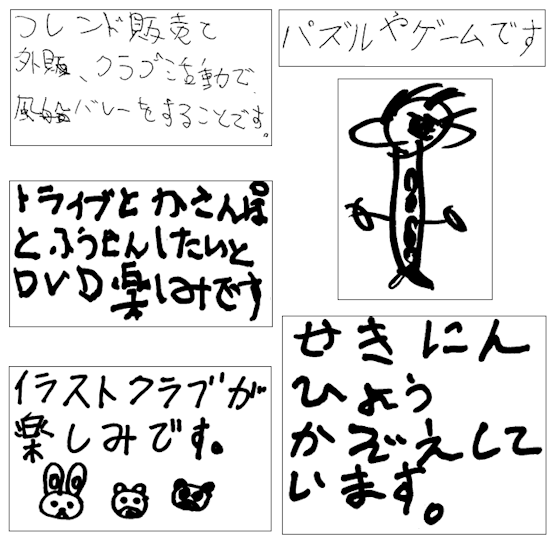 フレンド販売で
外販、クラブ活動で
風船バレーをすることです。
ドライブと かさんぽ
とふうせんしたいと
DVD楽しみです
イラストクラブが
楽しみです。
パズルやゲームです
せきにん
ひょう
かぞえして
います。